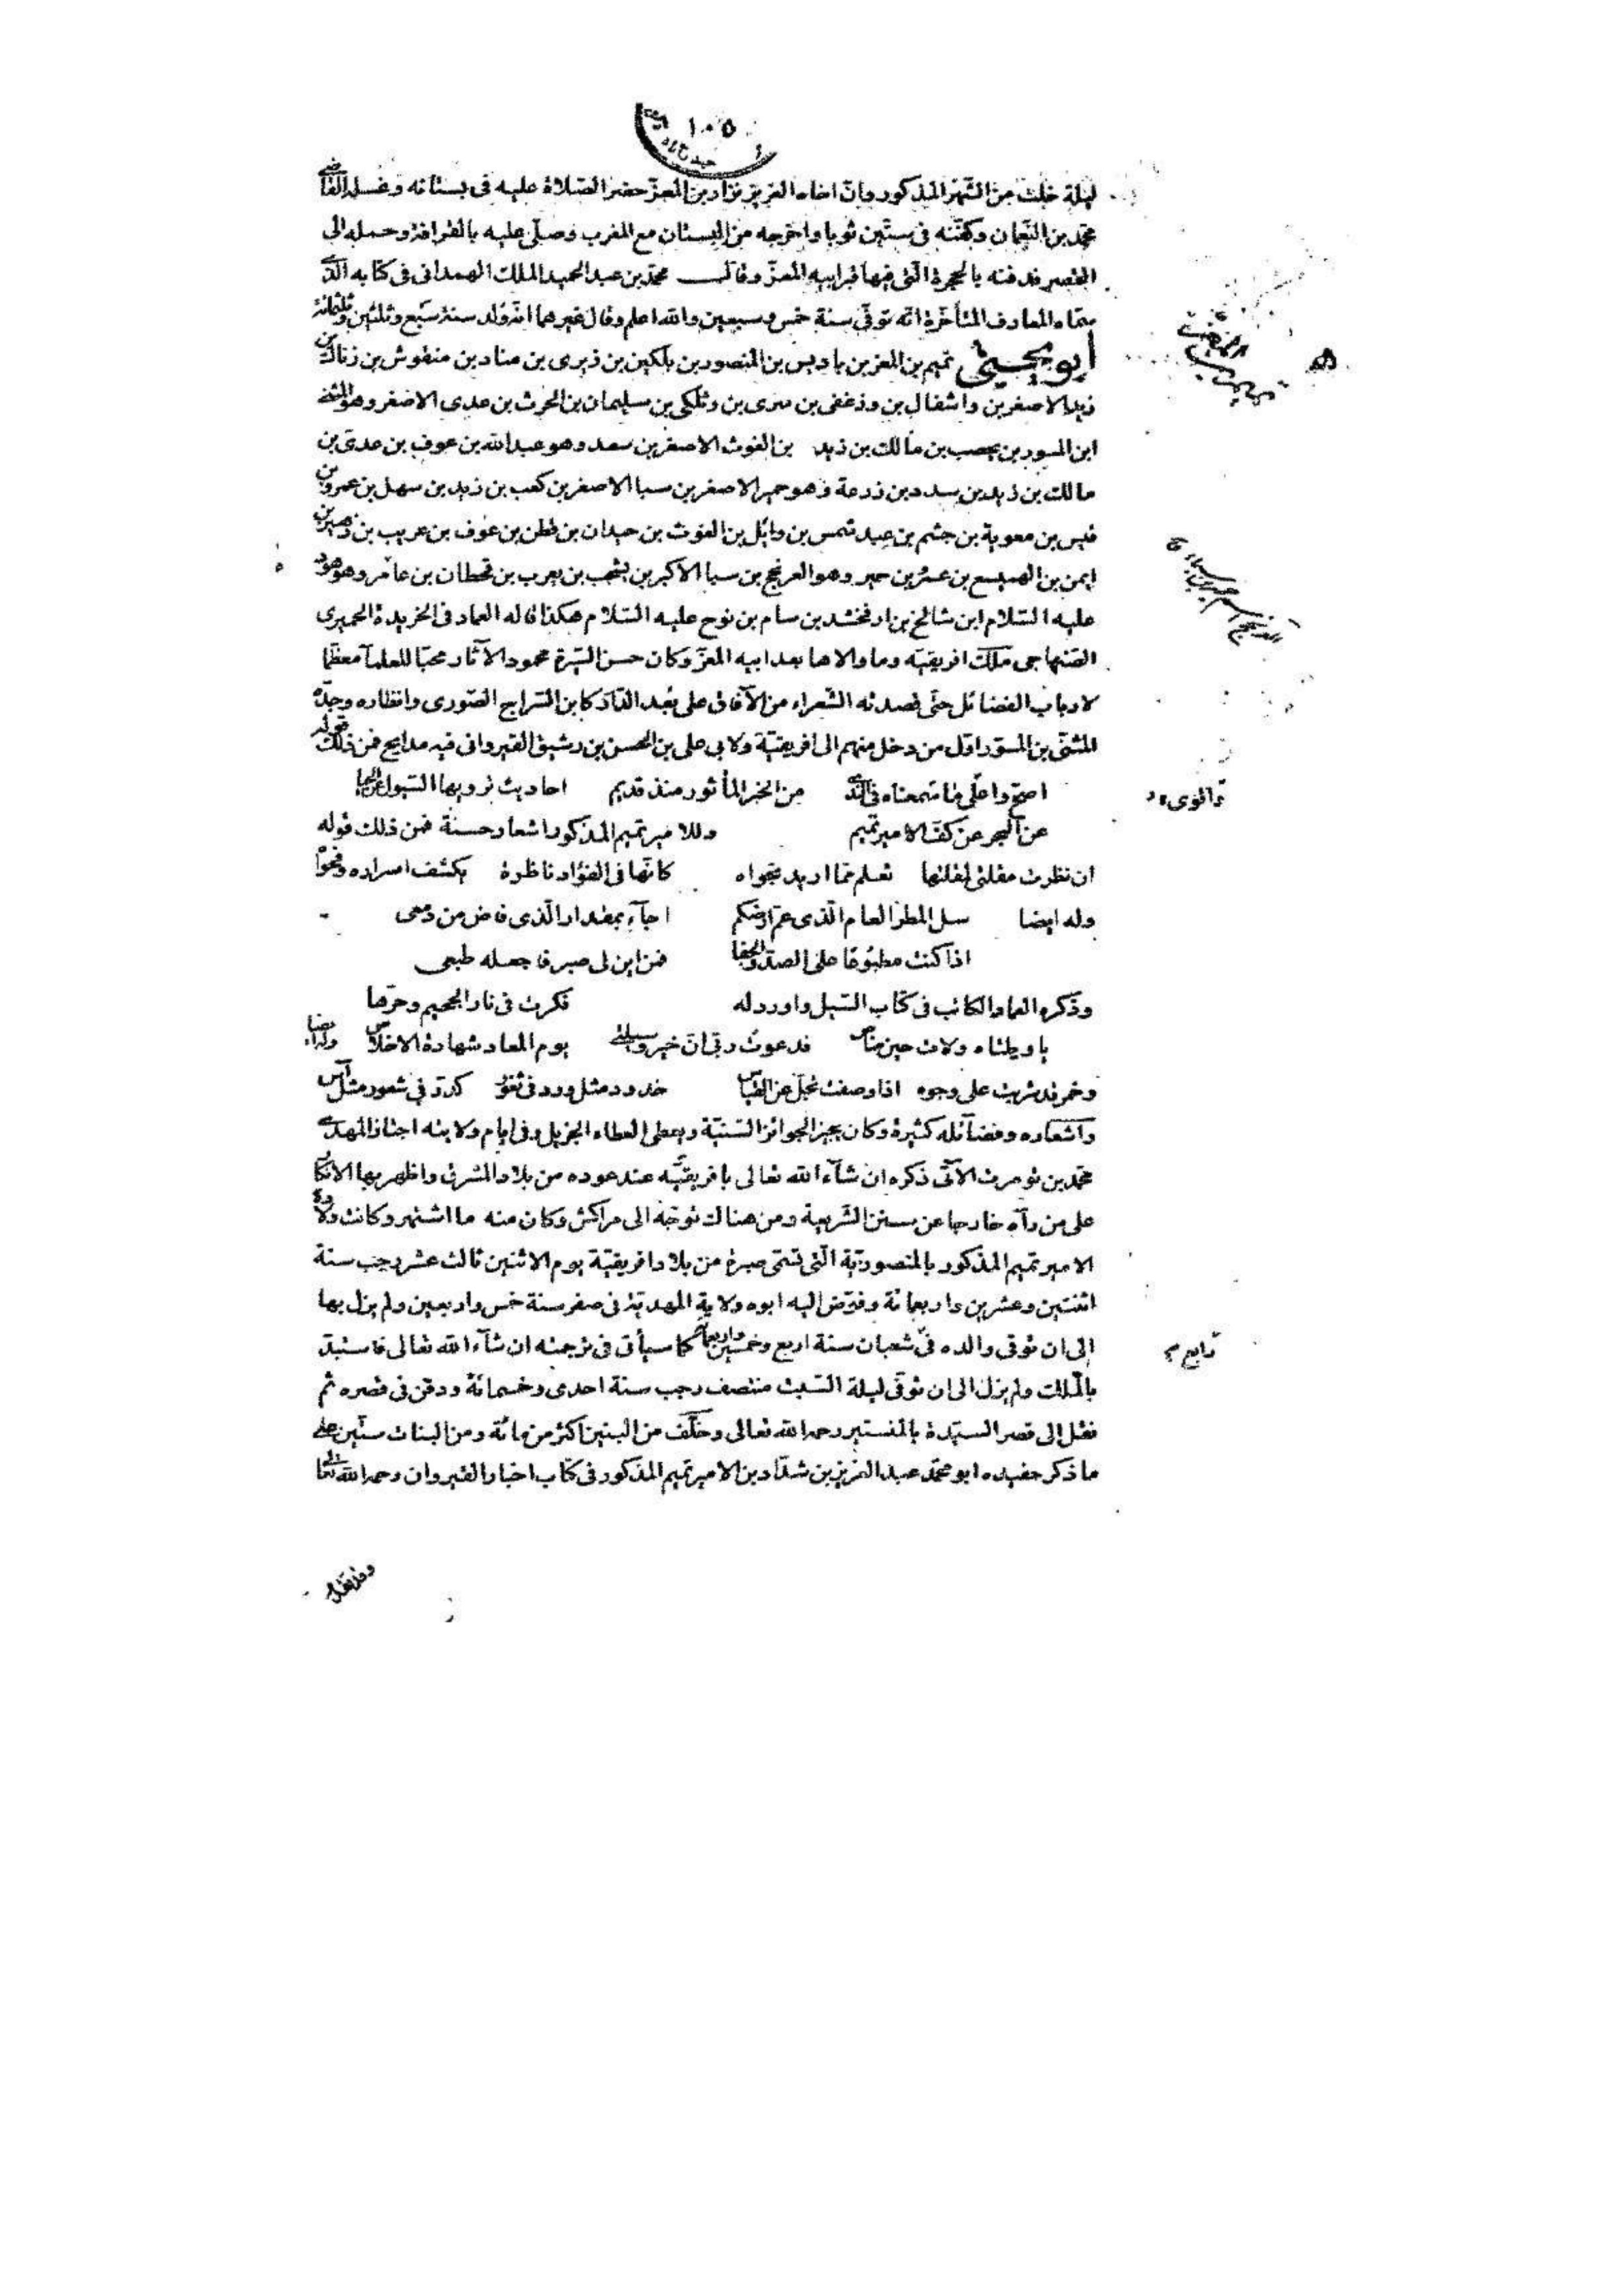 ١٠٥
ليلة خلت من الشهر المذكور وانّ اخاه العزيز نزار بن المعزّ حضر الصّلاة عليه فى بستانه وغسله القاضى
محمّد بن النّعمان وكفّنه فى ستّين ثوبا واخرجه من البستان مع المغرب وصلّى عليه بالقرافة وحمله الى
القصر فدفنه بالحجرة الّتى فيها قبر ابيه المعزّ وقال محمّد بن عبد الحميد الملك الهمدانى فى كتابه الّذى
سمّاه المعارف المتأخّرة انّه توفّى سنة خمس وسبعين والله اعلم وقال غيرهما انّه ولد سنة سبع وثلثين وثلثمائة
أبو يحيى تميم بن المعز بن باديس بن المنصور بن بلكين بن زيرى بن مناد بن منقوش بن زناك بن
زيد الاصغر بن واشفال بن وزغفى بن سرى بن وتلكى بن سليمان بن الحرث بن عدى الاصغر وهو المثنى
ابن المسور بن يحصب بن مالك بن زيد بن الغوث الاصغر بن سعد وهو عبد الله بن عوف بن عدىّ بن
مالك بن زيد بن سدد بن زرعة وهو حمير الاصغر بن سبا الاصغر بن كعب بن زيد بن سهل بن عمرو بن
قيس بن معوية بن جشم بن عبد شمس بن وائل بن الغوث بن حيدان بن قطن بن عوف بن عريب بن زهير بن
ايمن بن الهميسع بن عمرو بن حمير وهو العرنج بن سبا الاكبر بن يشجب بن يعرب بن قحطان بن عامر وهو هود
عليه السّلام ابن شالخ بن ارفخشد بن سام بن نوح عليه السّلام هكذا قاله العماد فى الخريدة الحميرى
الصّنهاجى ملك افريقيّه وما والاها بعد ابيه المعزّ وكان حسن السّيرة محمود الآثار محبّا للعلماء معظّما
لارباب الفضائل حتّى قصدته الشّعراء من الآفاق على بعد الدّار كابن السّراج الصّورى وانظاره وجدّه
المثنّى بن المسوّر اوّل من دخل منهم الى افريقيّة ولابى على بن الحسن بن رشيق القيروانى فيه مدايح فمن ذلك قوله
اصحّ واعلى ما سمعناه فى النّدى من الخبر المأثور منذ قديم احاديث ترويها السّيول عن الحيا
عن البحر عن كفّ الامير تميم وللامير تميم المذكور اشعار حسنة فمن ذلك قوله
ان نظرت مقلتى لمقلتها تعلم ممّا اريد نجواه كانّها فى الفؤاد ناظرة يكشف اسراره وفحواه
وله ايضا سل المطر العام الّذى عمّ ارضكم اجآء بمقدار الّذى فاض من دمعى
اذا كنت مطبوعا على الصدّ والجفا فمن اين لى صبر فاجعله طبعى
وذكره العماد الكاتب فى كتاب السّيل واورد له فكرت فى نار الجحيم وحرّها
يا ويلتاه ولات حين مناص فدعوت ربّى انّ خير وسيلتى يوم المعاد شهادة الاخلاص وله ايضا
وخمر قد شربت على وجوه اذا وصفت تجلّ عن القياس خدود مثل ورد فى ثغور كدرّ فى شعور مثل آس
واشعاره وفضآئله كثيرة وكان يجيز الجوائز السّنيّة ويعطى العطاء الجزيل وفى ايام ولايته اجتاز المهدى
محمّد بن تومرت الآتى ذكره ان شآء الله تعالى بافريقيّه عند عوده من بلاد المشرق واظهر بها الانكار
على من رآه خارجا عن سنن الشّريعة ومن هناك توجّه الى مراكش وكان منه ما اشتهر وكانت ولادة
الامير تميم المذكور بالمنصوريّة الّتى تسمّى صبرة من بلاد افريقيّة يوم الاثنين ثالث عشر رجب سنة
اثنتين وعشرين واربعمائة وفوّض اليه ابوه ولاية المهديّة فى صفر سنة خمس واربعين ولم يزل بها
الى ان توفّى والده فى شعبان سنة اربع وخمسين واربعمائة كما سيأتى فى ترجمته ان شآء الله تعالى فاستبدّ
بالملك ولم يزل الى ان توفّى ليلة السّبت منتصف رجب سنة احدى وخمسمائة ودفن فى قصره ثم
نقل الى قصر السيّدة بالمنستير رحمه الله تعالى وخلّف من البنين اكثر من مائة ومن البنات ستّين على
ما ذكر حفيده ابو محمّد عبد العزيز بن شدّاد بن الامير تميم المذكور فى كتاب اخبار القيروان رحمه الله تعالى